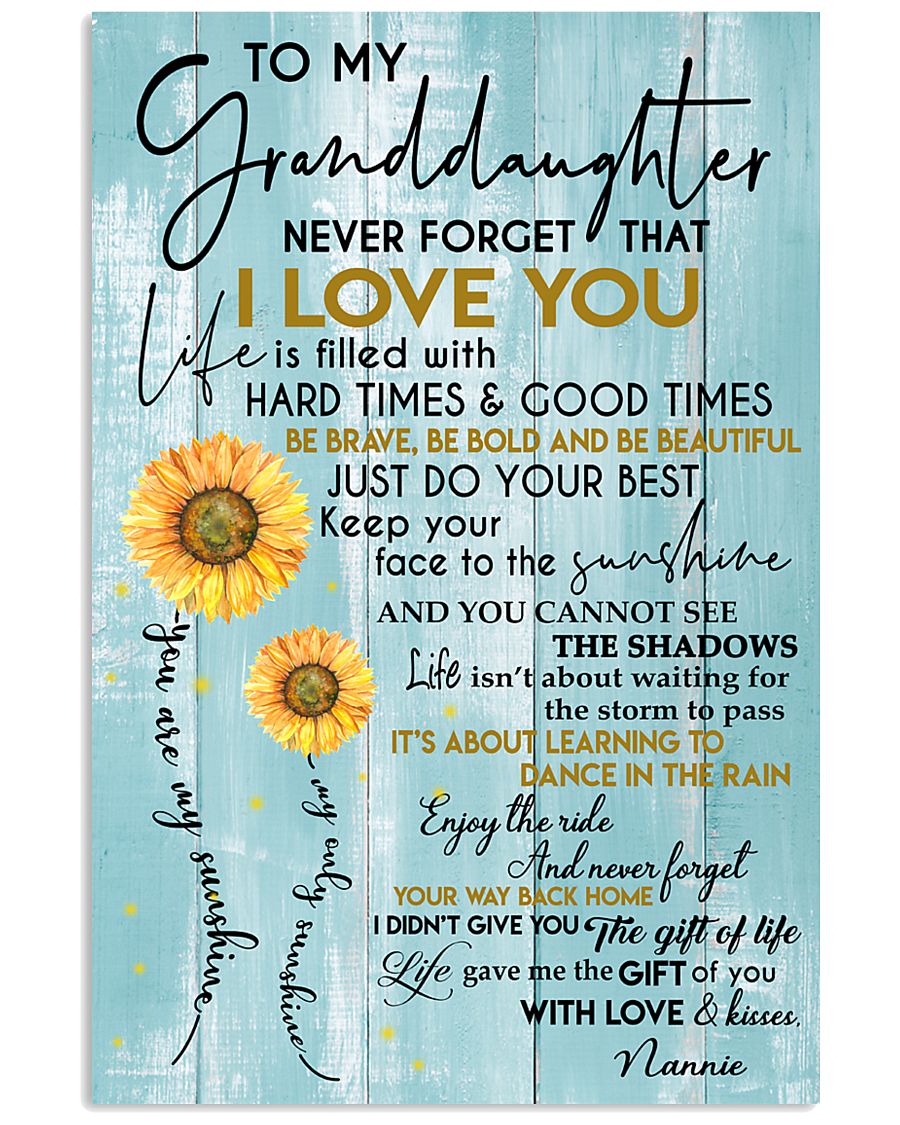 TO MY
Granddaughter
NEVER FORGET THAT
I LOVE YOU
Life is filled with
HARD TIMES & GOOD TIMES
BE BRAVE, BE BOLD AND BE BEAUTIFUL
JUST DO YOUR BEST
Keep your
face to the sunshine
AND YOU CANNOT SEE
THE SHADOWS
Life isn't about waiting for
the storm to pass
IT'S ABOUT LEARNING TO
DANCE IN THE RAIN
Enjoy the ride
And never forget
YOUR WAY BACK HOME
I DIDN'T GIVE YOU The gift of life
Life gave me the GIFT of you
WITH LOVE & kisses,
Nannie
you are my sunshine
my only sunshine